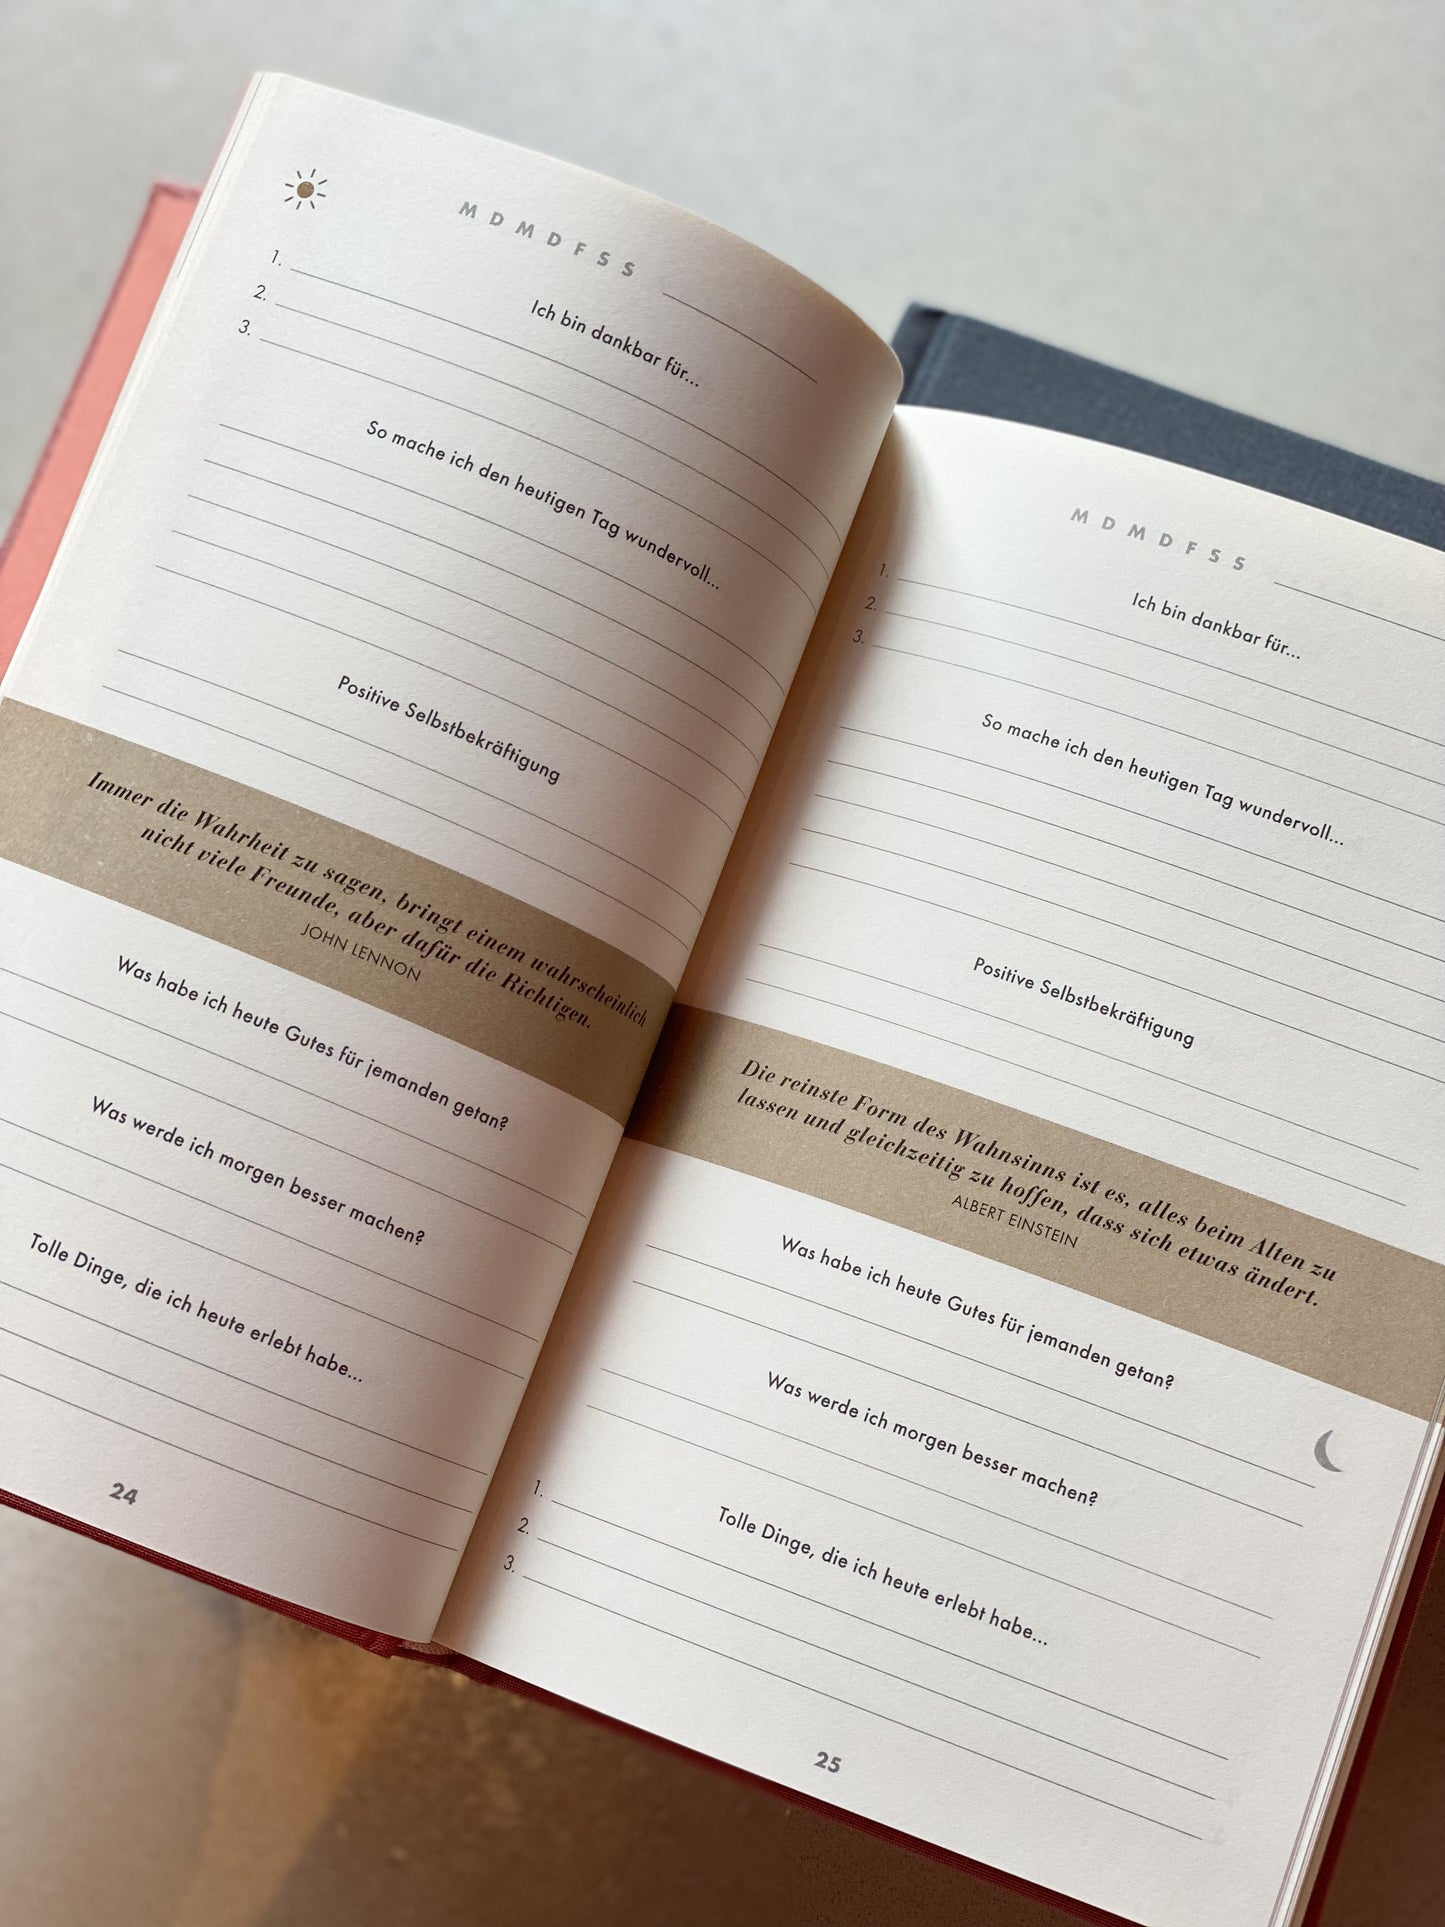 M D M D F S S
Ich bin dankbar für...
1.
2.
3.
So mache ich den heutigen Tag wundervoll...
Positive Selbstbekräftigung
Immer die Wahrheit zu sagen, bringt einem wahrscheinlich
nicht viele Freunde, aber dafür die Richtigen.
JOHN LENNON
Was habe ich heute Gutes für jemanden getan?
Was werde ich morgen besser machen?
Tolle Dinge, die ich heute erlebt habe...
24
M D M D F S S
Ich bin dankbar für...
1.
2.
3.
So mache ich den heutigen Tag wundervoll...
Positive Selbstbekräftigung
Die reinste Form des Wahnsinns ist es, alles beim Alten zu
lassen und gleichzeitig zu hoffen, dass sich etwas ändert.
ALBERT EINSTEIN
Was habe ich heute Gutes für jemanden getan?
Was werde ich morgen besser machen?
Tolle Dinge, die ich heute erlebt habe...
1.
2.
3.
25